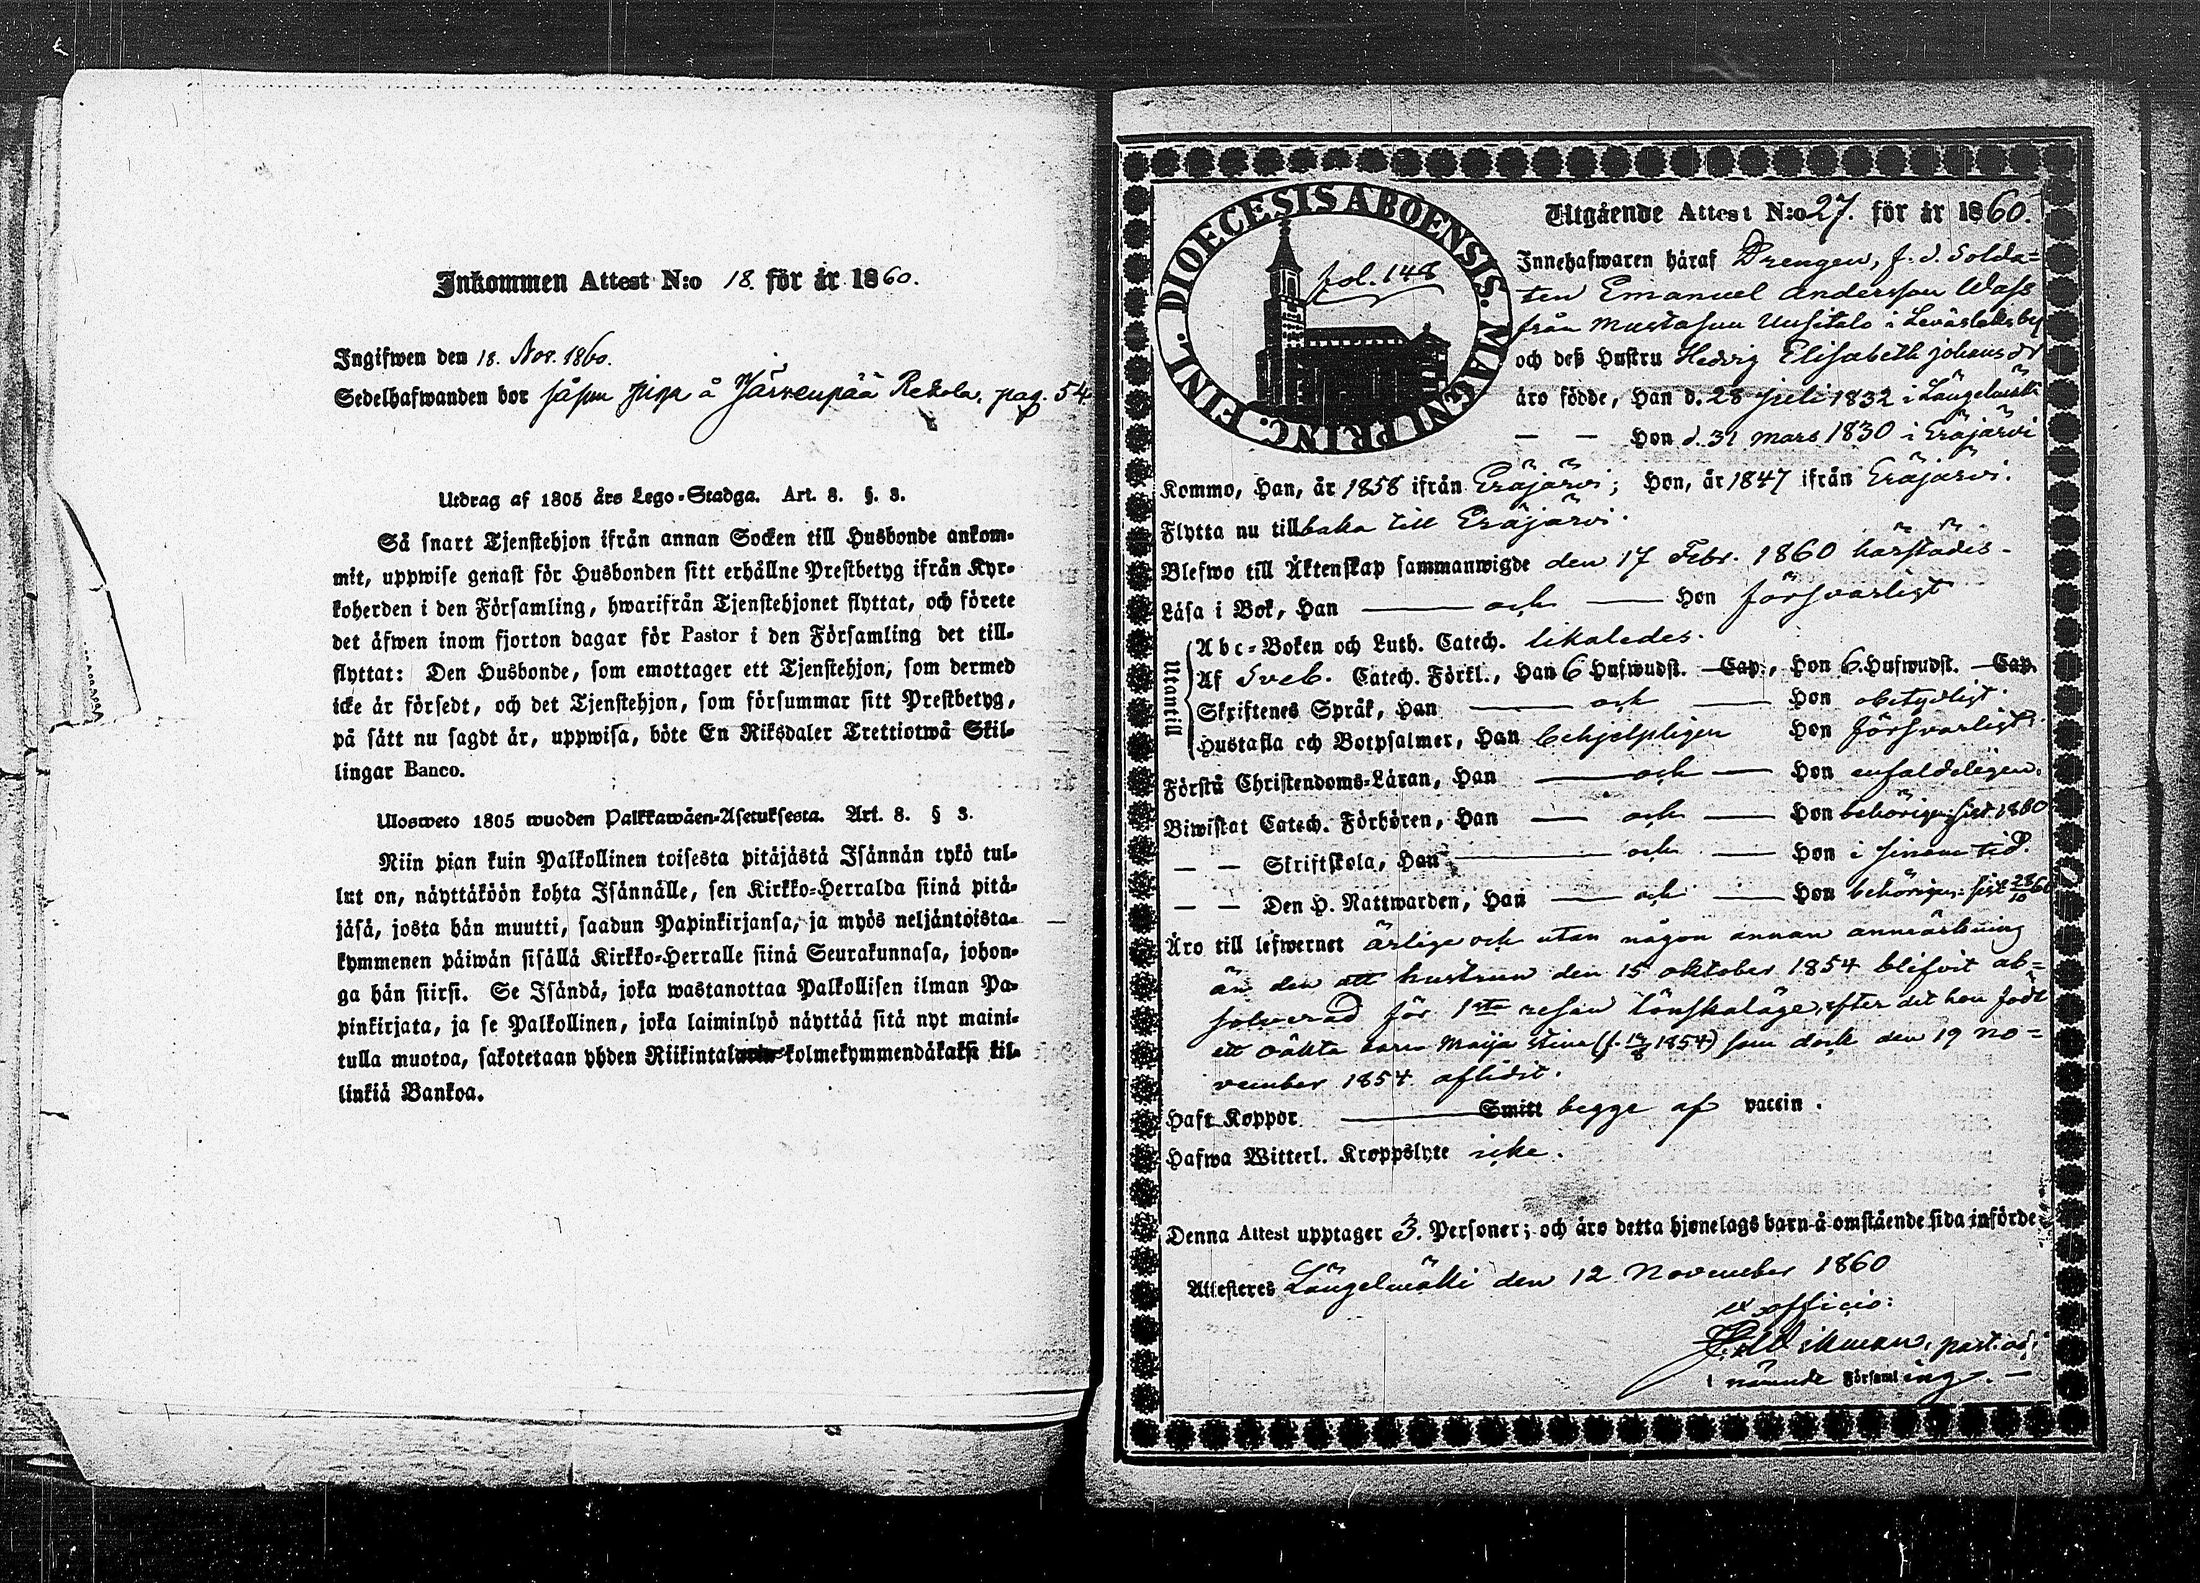 Inkommen Attest N:o 18. för år 1860.
Ingifwen den 18. Nov. 1860.
Sedelhafwanden bor såsom piga å Järvenpää Rekola, pag. 54
Utdrag af 1805 års Lego-Stadga. Art. 8. §. 3.
Så snart Tjenstehjon ifrån annan Socken till Husbonde ankom-
mit, uppwise genast för Husbonden sitt erhållne Prestbetyg ifrån Kyr-
koherden i den Församling, hwarifrån Tjenstehjonet flyttat, och förete
det äfwen inom fjorton dagar för Pastor i den Församling det till-
flyttat: Den Husbonde, som emottager ett Tjenstehjon, som dermed
icke är försedt, och det Tjenstehjon, som försummar sitt Prestbetyg,
på sätt nu sagdt är, uppwisa, böte En Riksdaler Trettiotwå Skil-
lingar Banco.
Ulosweto 1805 wuoden Palkkawäen-Asetuksesta. Art. 8. § 3.
Niin pian kuin Palkollinen toisesta pitäjästä Isännän tykö tul-
lut on, näyttäköön kohta Isännälle, sen Kirkko-Herralda siinä pitä-
jäsä, josta hän muutti, saadun Papinkirjansa, ja myös neljäntoista-
kymmenen päiwän sisällä Kirkko-Herralle siinä Seurakunnasa, johon-
ga hän siirsi. Se Isändä, joka wastanottaa Palkollisen ilman Pa-
pinkirjata, ja se Palkollinen, joka laiminlyö näyttää sitä nyt maini-
tulla muotoa, sakotetaan yhden Riikintal kolmekymmendäkaksi kil-
linkiä Bankoa.
DIOECESIS ABOENSIS. MAGNI PRINC. FINL.
fol. 148
Utgående Attest N:o 27. för år 1860.
Innehafwaren häraf Drengen, f. d. Solda-
ten Emanuel Andersson Wass
från Mustasuu Uusitalo i Leväslaks by
och deß Hustru Hedvig Elisabeth Johansdr
äro födde, Han d. 28 Juli 1832 i Längelmäki
— — Hon d. 31 Mars 1830 i Eräjärvi
Kommo, Han, år 1858 ifrån Eräjärvi; Hon, år 1847 ifrån Eräjärvi.
Flytta nu tillbaka till Eräjärvi.
Blefwo till Äktenskap sammanwigde den 17 Febr. 1860 härstädes.
Läsa i Bok, Han — och — Hon försvarligt
Utantill
Abc-Boken och Luth. Catech. likaledes.
Af Sveb. Catech. Förkl., Han 6 Hufwudst. — Cap., Hon 6 Hufwudst. — Cap.
Skriftenes Språk, Han — och — Hon obetydligt.
Hustafla och Botpsalmer, Han behjelpligen Hon försvarligt
Förstå Christendoms-Läran, Han — och — Hon enfaldeligen.
Biwistat Catech. Förhören, Han — och — Hon behörigen, sist 1860
— — Skriftskola, Han — och — Hon i sinom tid.
— — Den H. Nattwarden, Han — och — Hon behörigen, sist 28/10 60
Äro till lefwernet ärliga och utan någon annan anmärkning
än den att hustrun den 15 oktober 1854 blifvit ab-
solverad för 1sta resan lönskaläge, efter det hon födt
ett oäkta barn Maija Stina (f. 13/8 1854) som dock den 19 No-
vember 1854 aflidit.
Haft Koppor — Smitt begge af vaccin.
Hafwa Witterl. Kroppslyte icke.
Denna Attest upptager 3. Personer; och äro detta hjonelags barn å omstående sida införde.
Attesteres Längelmäki den 12 November 1860
ex officio:
Wikman, past. adj.
i nämnde Församling. —